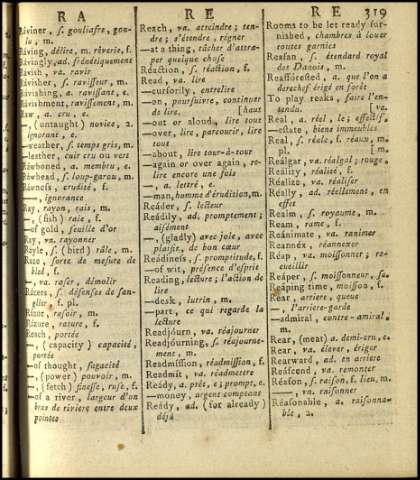 R A
R E
R E 319
Riviner, s. gouliafre, gou-
lu, m.
Raving, délire, m. rêverie, f.
Ravingly, ad. frénétiquement
Ravish, va. ravir
Ravisher, s. ravisseur, m.
Ravishing, a. ravissant, e.
Ravishment, ravissement, m.
Raw, a. cru, e.
—, (untaught) novice, 2.
ignorant, e.
—weather, s. tems gris, m.
—leather, cuir cru ou vert
Rawboned, a. membru, e.
Rawhead, s. loup-garou, m.
Rawness, crudité, f.
—, ignorance
Ray, rayon, rais, m.
—, (fish) raie, f.
—of gold, feuille d'or
Ray, va. rayonner
Rayle, s. (bird) râle, m.
Raze, sorte de mesure de
bled, f.
—, va. raser, démolir
Razers, s. défenses de san-
glier, f. pl.
Razor, rasoir, m.
Razure, rature, f.
Reach, portée
—, (capacity) capacité,
portée
—of thought, sagacité
—, (power) pouvoir, m.
—, (fetch) finesse, ruse, f.
—of a river, largeur d'un
bras de riviere entre deux
pointes
Reach, va. atteindre; ten-
dre; s'étendre, régner
—at a thing, tâcher d'attra-
per quelque chose
Réaction, s. réaction, f.
Read, va. lire
—cursorily, entrelire
—on, poursuivre, continuer
de lire. [haut
—out or aloud, lire tout
—over, lire, parcourir, lire
tout
—about, lire tour-à-tour
—again or over again, re-
lire encore une fois
—, a. lettré, e.
—man, homme d'érudition, m.
Réader, s. lecteur
Réadily, ad. promptement;
aisément
—, (gladly) avec joie, avec
plaisir, de bon cœur
Réadiness, s. promptitude, f.
—of wit, présence d'esprit
Reading, lecture; l'action de
lire
—desk, lutrin, m.
—part, ce qui regarde la
lecture
Readjóurn, va. réajourner
Readjóurning, s. réajourne-
ment, m.
Readmíssion, réadmission, f.
Readmít, va. réadmettre
Réady, a. prêt, e; prompt, e.
—money, argent comptant
Réady, ad. (for already)
déjà
Rooms to be let ready fur-
nished, chambres à louer
toutes garnies
Reafan, s. étendard royal
des Danois, m.
Reafforésted, a. que l'on a
derechef érigé en forêt
To play reaks, faire l'en-
tendu. [va.
Real, a. réel, le; effectif,
—estate, biens immeubles
Real, s. réale, f. réaux, m.
pl. [m.
Reálgar, va. réalgal; rouge,
Reálity, réalité, f.
Réalize, va. réaliser
Réally, ad. réellement, en
effet
Realm, s. royaume, m.
Ream, rame, f.
Reánimate, va. ranimer
Reannéx, réannexer
Réap, va. moissonner; re-
cueillir
Réaper, s. moissonneur
Réaping time, moisson, f.
Rear, arriere, queue
—, l'arriere-garde
—admiral, contre-amiral,
m.
Rear, (meat) a. demi-cru, e.
Rear, va. élever, ériger
Rearward, ad. en arriere
Reáscend, va. remonter
Réason, s. raison, f. lieu, m.
—, va. raisonner
Réasonable, a. raisonna-
ble, 2.